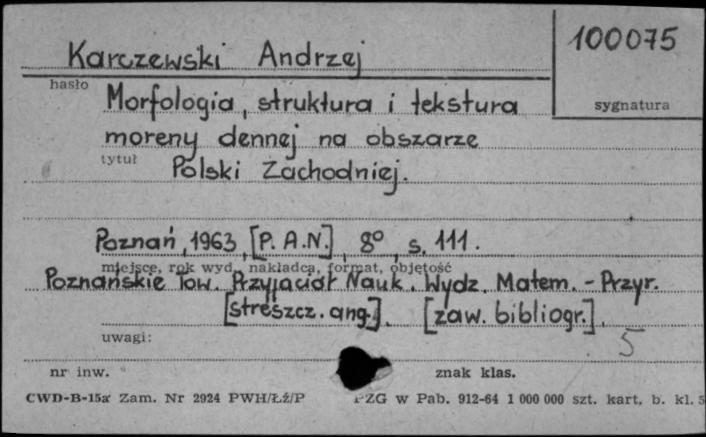 Karczewski Andrzej
100075
hasło
sygnatura
Morfologia, struktura i tekstura
moreny dennej na obszarze
tytuł
Polski Zachodniej.
Poznań, 1963, [P.A.N.], 8°, s. 111.
miejsce, rok wyd., nakładca, format, objętość
Poznańskie Tow. Przyjaciół Nauk. Wydz. Matem. - Przyr.
[streszcz. ang.]. [zaw. bibliogr.].
uwagi:
5
nr inw.
znak klas.
CWD-B-15a Zam. Nr 2924 PWH/Łź/P
PZG w Pab. 912-64 1 000 000 szt. kart. b. kl. 5